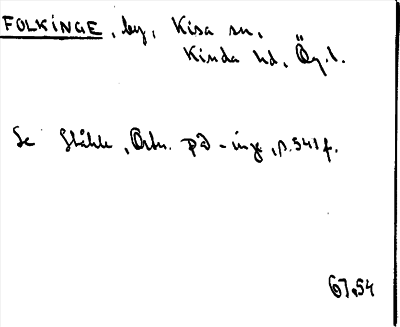 FOLKINGE, by, Kisa sn,
Kinda hd, Ög.l.
Se Ståhle, Ortn. på -inge, s. 541 f.
67.54